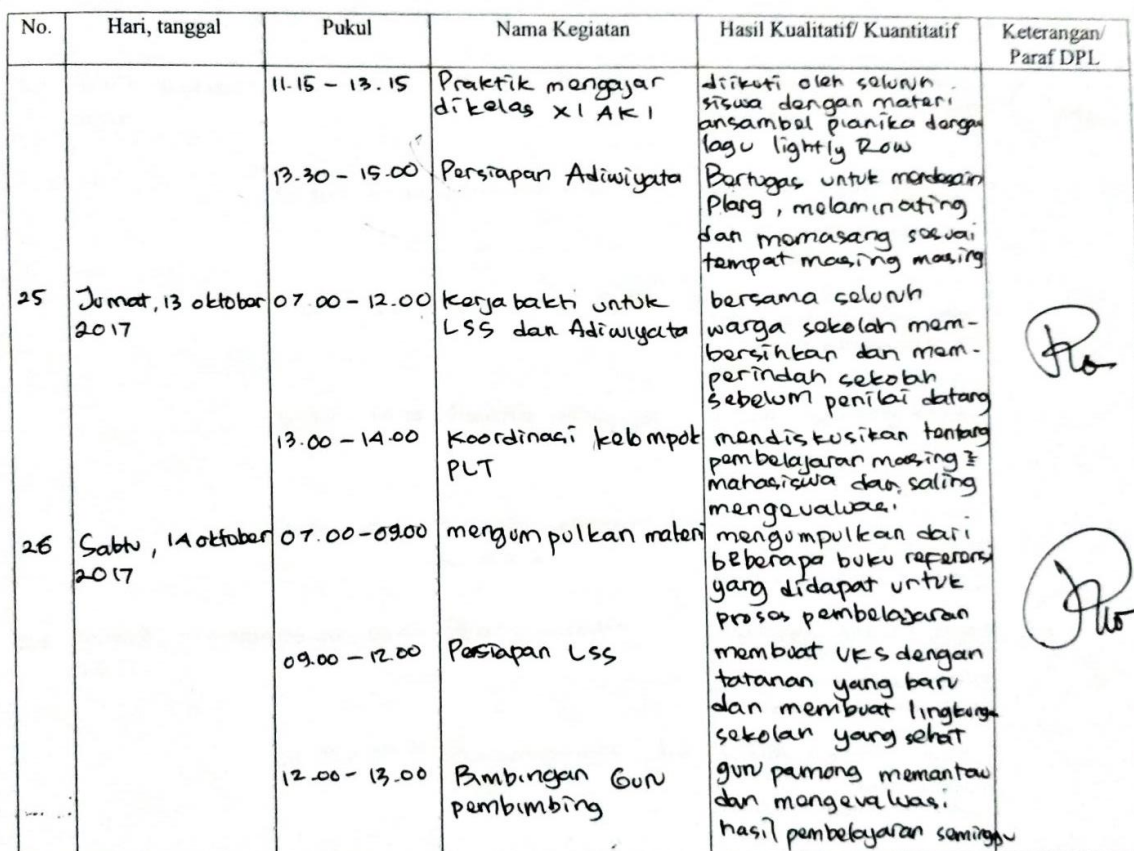 No. Hari, tanggal Pukul Nama Kegiatan Hasil Kualitatif/ Kuantitatif Keterangan/
Paraf DPL
11.15 - 13.15 Praktik mengajar diikuti oleh seluruh
dikelas XI AK 1 siswa dengan materi
ansambel pianika dengan
lagu lightly Row
13.30 - 15.00 Persiapan Adiwiyata Bertugas untuk mendesain
Plang, melaminating
dan memasang sesuai
tempat masing masing
25 Jumat, 13 oktober 07.00 - 12.00 Kerja bakti untuk bersama seluruh
2017 LSS dan Adiwiyata warga sekolah mem-
bersihkan dan mem-
perindah sekolah
sebelum penilai datang
13.00 - 14.00 Koordinasi kelompok mendiskusikan tentang
PLT pembelajaran masing2
mahasiswa dan saling
mengevaluasi
26 Sabtu, 14 oktober 07.00 - 09.00 mengumpulkan materi mengumpulkan dari
2017 beberapa buku referensi
yang didapat untuk
proses pembelajaran
09.00 - 12.00 Persiapan LSS membuat UKS dengan
tatanan yang baru
dan membuat lingkungan
sekolah yang sehat
12.00 - 13.00 Bimbingan Guru guru pamong memantau
pembimbing dan mengevaluasi
hasil pembelajaran seminggu